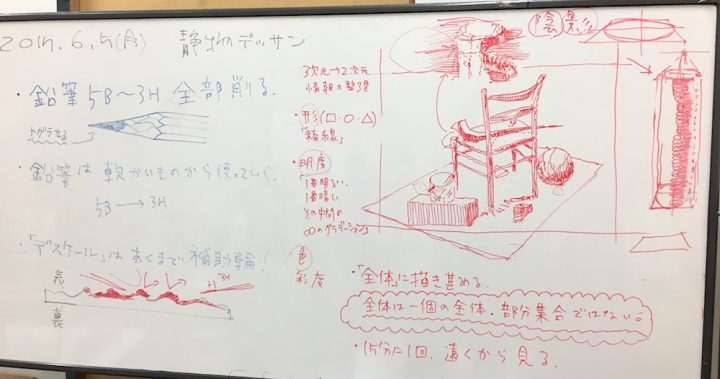 6.5(月) 静物デッサン
・鉛筆5B〜3H 全部削る。
とがらせる
・鉛筆は軟かいものから使っていく。
5B→3H
・「デスケール」はあくまで補助輪!
表
裏
3H
3次元→2次元
情報の整理
・形(□・○・△)
「輪線」
・明度
「1番明るい、
1番暗い、
その中間の
∞のグラデーション」
色
彩度
陰影
・「全体」に描き進める。
全体は一個の全体・部分集合ではない。
・15分に1回、遠くから見る。